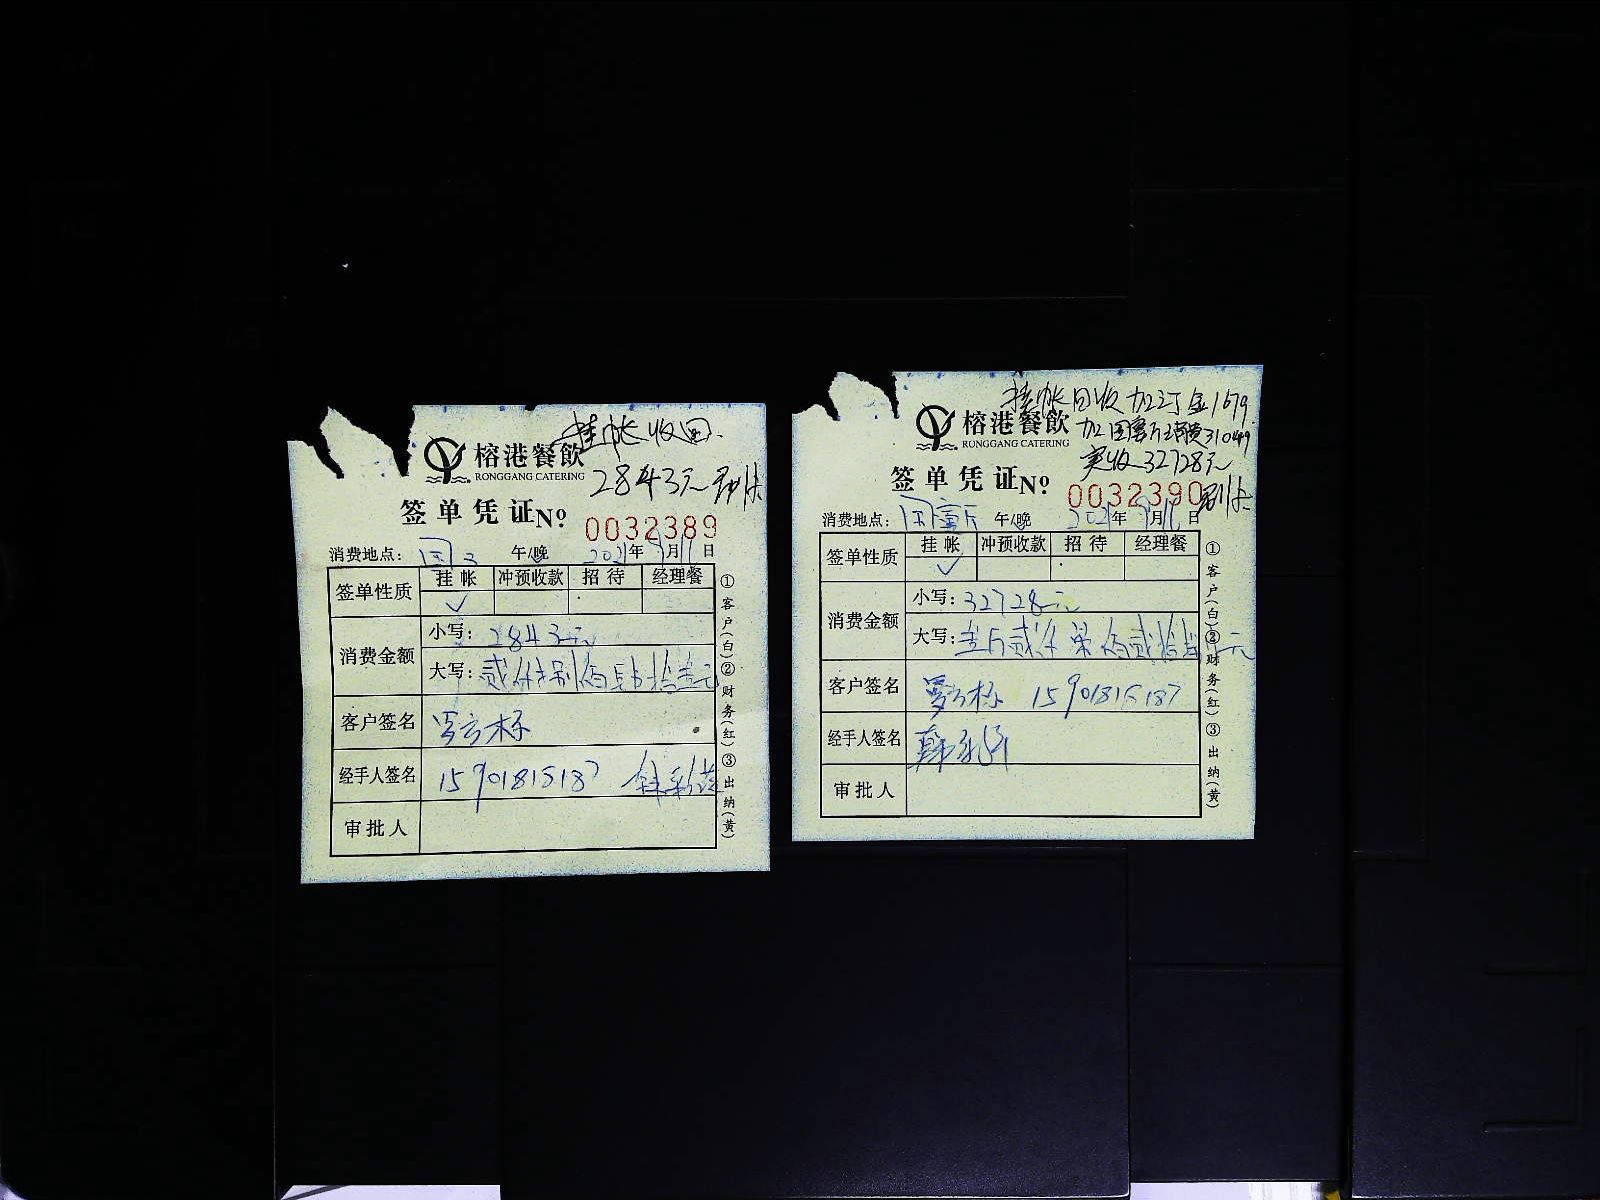 挂帐收回.
榕港餐飲
RONGGANG CATERING
2843元 刷卡
签单凭证 Nº 0032389
消费地点: 午/晚 2021年 月 日
签单性质 挂帐 冲预收款 招待 经理餐
✓
消费金额 小写: 2843元
大写: 贰仟捌佰肆拾叁元
客户签名
经手人签名 15901815187
审批人
①客户(白)②财务(红)③出纳(黄)
挂帐回收 加订金1679
榕港餐飲
RONGGANG CATERING
31049
实收32728元
刷卡
签单凭证 Nº 0032390
消费地点: 午/晚 2021年 月 日
签单性质 挂帐 冲预收款 招待 经理餐
✓
消费金额 小写: 32728元
大写: 叁万贰仟柒佰贰拾捌元
客户签名 15901815187
经手人签名
审批人
①客户(白)②财务(红)③出纳(黄)